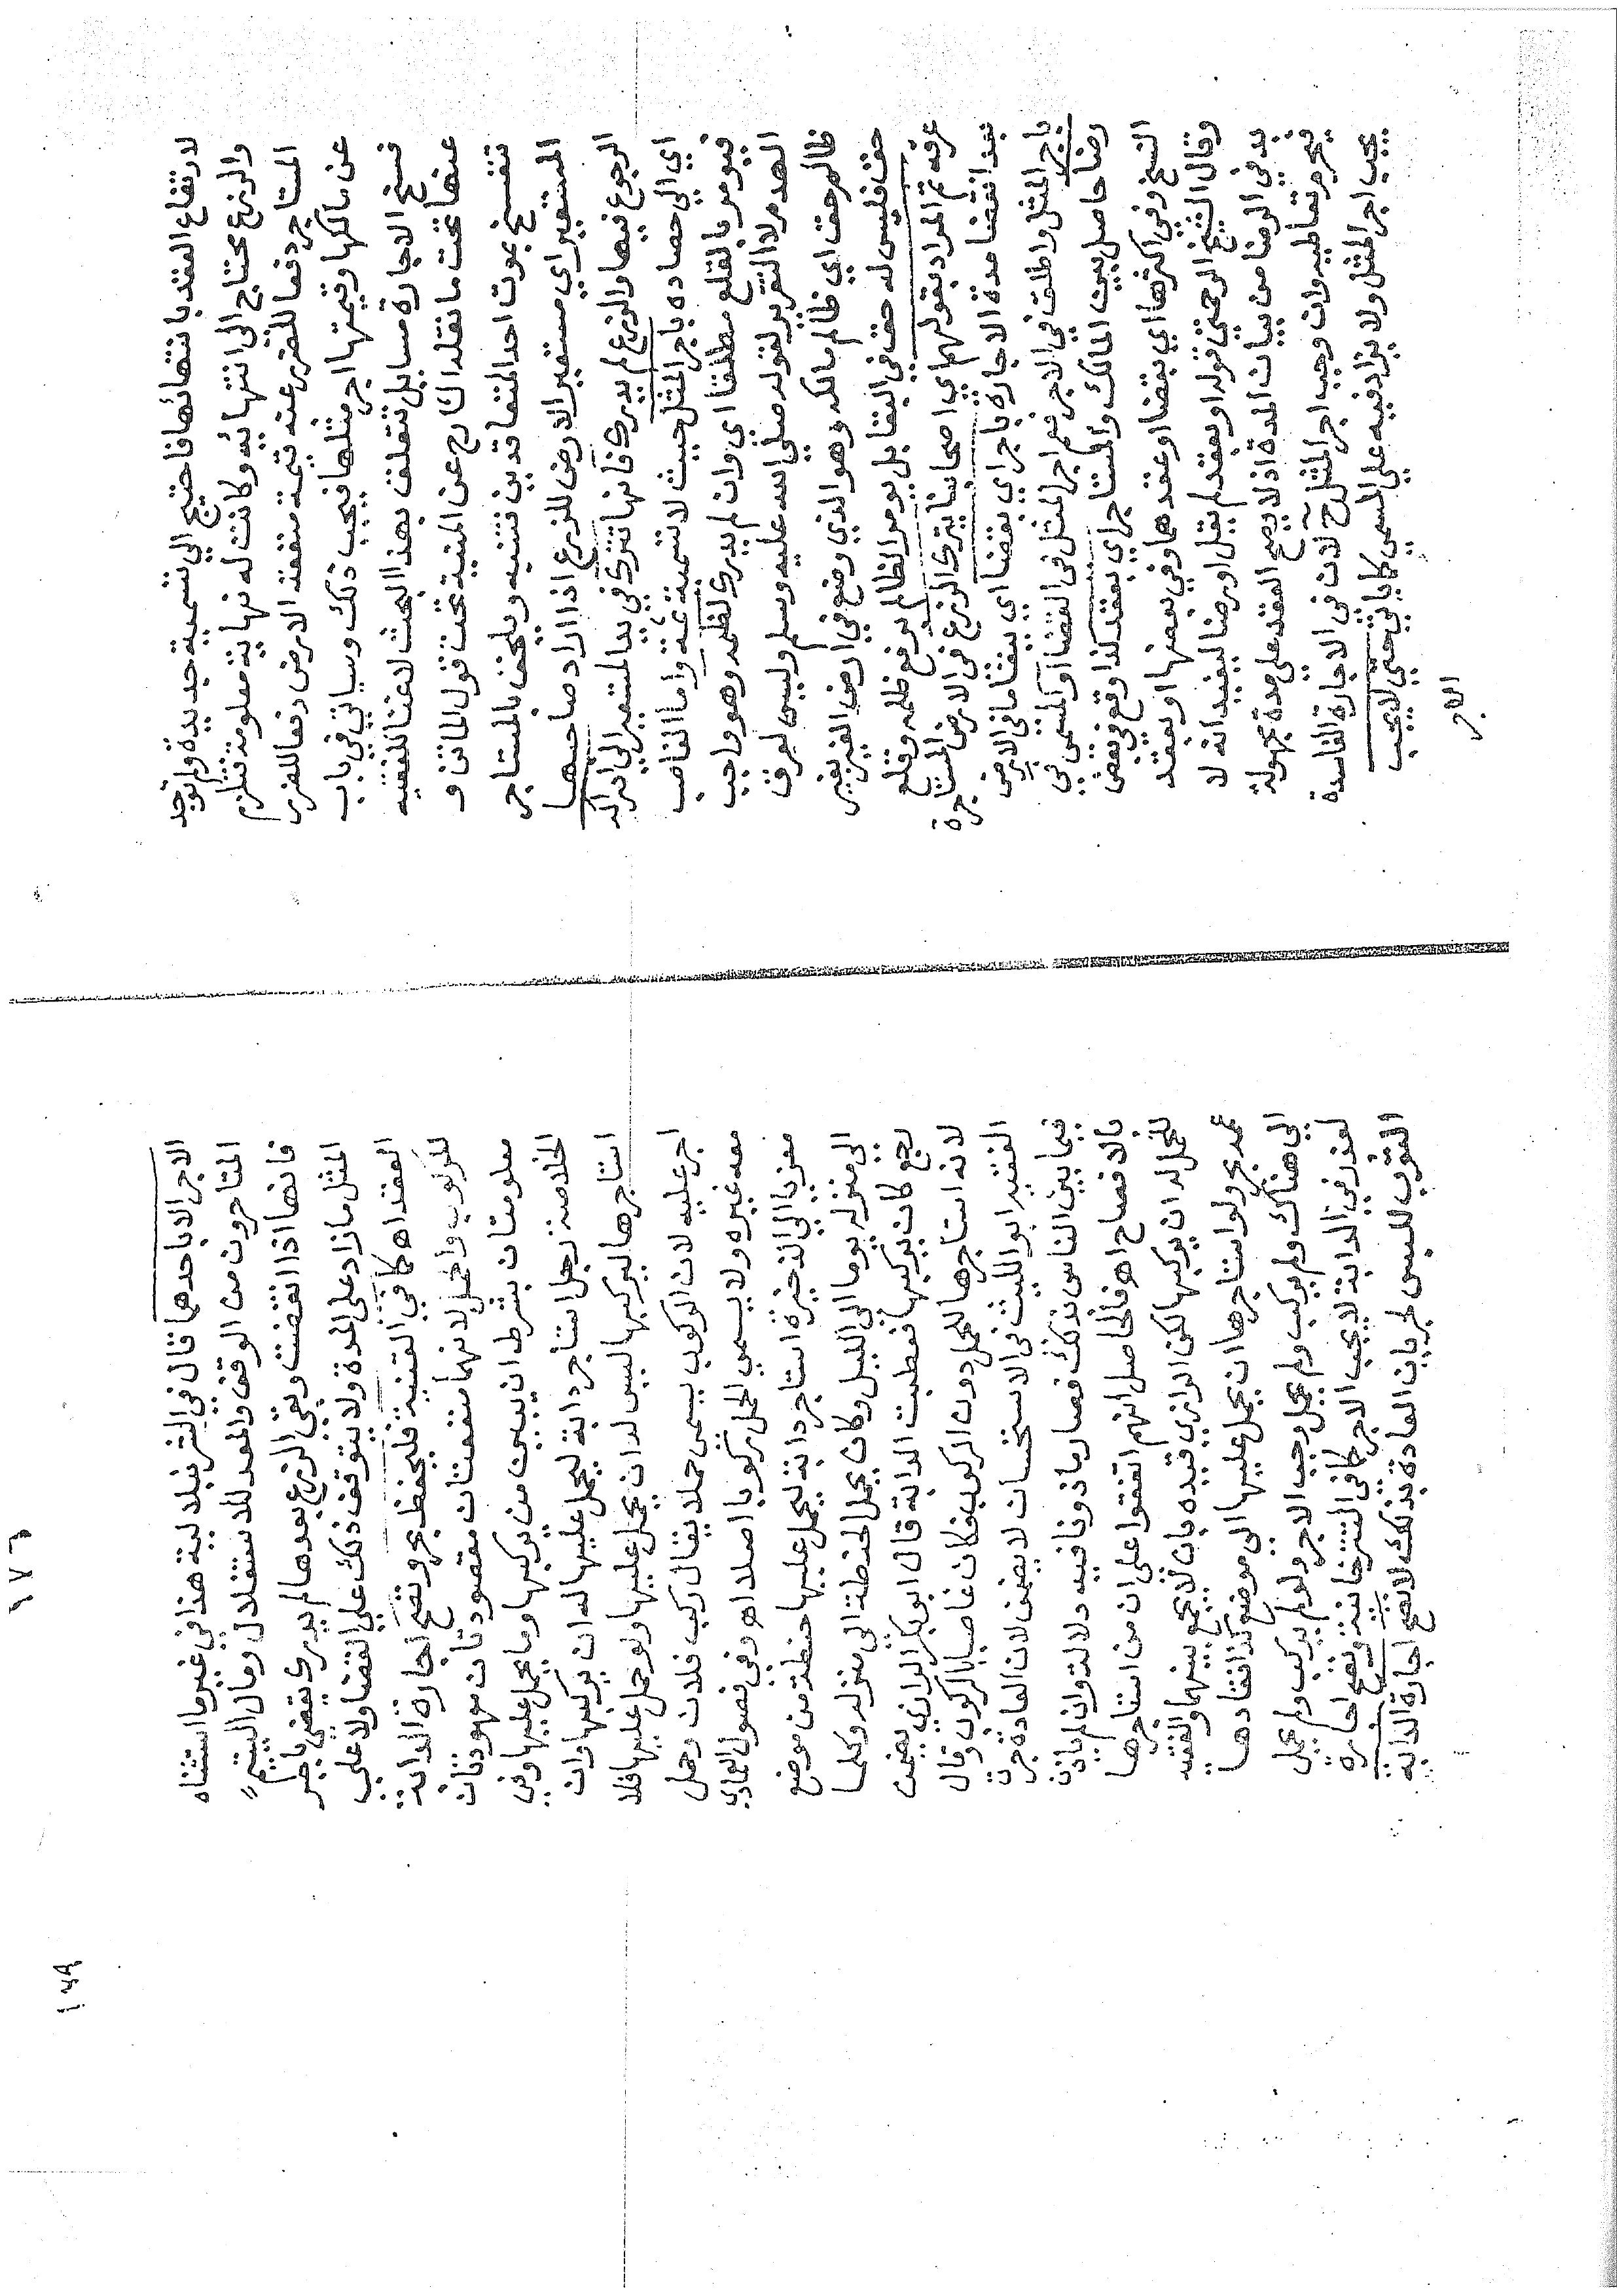 لارتفاع العقد بانتهائها فاحتيج الي تسمية جديدة ولم توجد
والزرع محتاج الى انتهائه وكانت له نهاية معلومة تلزم
المستاجر دفعا للضرر عنه قيمة منفعة الارض دفعا للضرر
عن مالكها وقيمتها اجر مثلها فيجب ذلك وسياتي في باب
فسخ الاجارة مسايل تتعلق بهذا البحث لا غنا للفقيه
عنها تحت ما نقله الشارح عن المنية تحت قول الماتن و
تنفسخ بموت احد المتعاقدين فتنبه ويلحق بالمستاجر
المستعير اي مستعير الارض للزرع اذا اراد صاحبها
الرجوع فيها والزرع لم يدرك فانها تترك في يد المستعير الي ادراكه
اي الي حصاده باجر المثل حيث لا تسمية ثمة واما الغاصب
فيومر بالقلع مطلقا اى وان لم يدرك لظلمه وهو واجب
الهدم لا التقرير لقوله صلي الله عليه وسلم وليس لعرق
ظالم حق اي ظالم مالكه وهو الذي وضع في ارض الغير بغير
حق فليس له حق في البقا بل يومر الظالم برفع ظلمه وقلع
عرقه ثم المراد بقولهم اي اصحابنا يترك الزرع في الارض المستاجرة
بعد انقضا مدة الاجارة باجر اي بقضا اي ببقا ما في الارض
باجر المثل واطلق في الاجر فعم اجر المثل في القضا او المسمى في
رضا حاصل بين المالك والمستاجر اي بعقد كذا وقع في بعض
النسخ وفي اكثرها اي بقضا او عقدهما وفي بعضها او بعقد
وقال الشيخ الرحمتي قوله او بعقد لم يقل او رضا ليفيد انه لا
بد في الرضا من بيان المدة اذ لا يصح العقد على مدة مجهولة
فيحرم تعاطيه وان وجب اجر المثل ح لان فى الاجارة الفاسدة
يجب اجر المثل ولا يزاد فيه علي المسمى كما ياتي حتى لا يجب
الاجر
١٧٦
الاجر الا باحدهما قال في الشرنبلالية هذا في غير ما استثناه
المتاخرون من الوقف والمعد للاستغلال ومال اليتيم
فانها اذا انقضت وبقي الزرع بعدها لم يدرك يقضى باجر
المثل ما زاد على المدة ولا يتوقف ذلك علي القضا ولا علي
العقد اه كما في القنية فليحفظ بحر وتصح اجارة الدابة
للركوب والحمل لانهما منفعتان مقصودتان معهودتان
معلومتان بشرط ان يبين من يركبها وما يحمل عليها وفي
الخلاصة رجل استاجر دابة ليحمل عليها له ان يركبها وان
استاجرها ليركبها ليس له ان يحمل عليها ولو حمل عليها فلا
اجر عليه لان الركوب يسمى حملا يقال ركب فلان وحمل
معه غيره ولا يسمي الحمل ركوبا اصلا اه وفي فصول العمادي
معزيا الي الذخيرة استاجر دابة ليحمل عليها حنطة من موضع
الى منزله يوما الى الليل وكان يحمل الحنطة الي منزله وكلما
رجع كان يركبها فعطبت الدابة قال ابو بكر الرازي يضمن
لانه استاجرها للحمل دون الركوب فكان غاصبا بالركوب وقال
الفقيه ابو الليث في الاستحسان لا يضمن لان العادة جرت
فيما بين الناس بذلك فصار ماذونا فيه دلالة وان لم ياذن
بالافصاح اه فالحاصل انهم اتفقوا على ان من استاجرها
للحمل له ان يركبها لكن الرازي قيده بان لا يجمع بينهما والفقيه
عمم بحر ولو استاجرها ان يحمل عليها الى موضع كذا فقادها
الي هناك ولم يركب ولم يحمل وجب الاجر ولو لم يركب ولم يحمل
لعذر في الدابة لا يجب الاجر كما في التترخانية وتصح اجارة
الثوب للبس لجريان العادة بذلك لا تصح اجارة الدابه
١٧٩